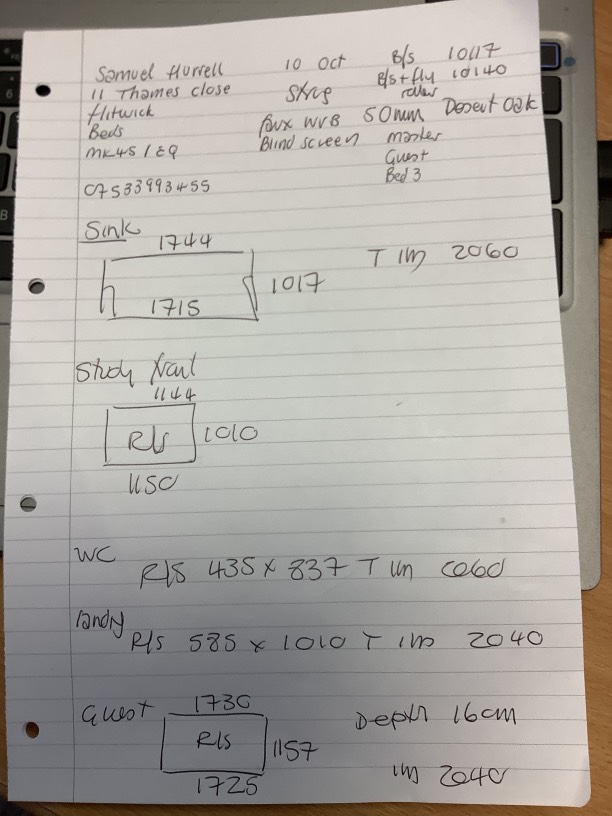 Samuel Hurrell 10 Oct B/s 10117
11 Thames close B/s + fly 10140
roller
Flitwick Strip
Beds Faux WVB 50mm Desert Oak
MK45 1EQ Blind screen master
Guest
Bed 3
07533993455
Sink
1744
T 1m 2060
1017
1715
Study
1144
R/s 1010
1150
WC
R/S 435 x 837 T 1m
R/s 585 x 1010 T 1m 2040
Guest 1730 Depth 16cm
R/s 1157
1m 2040
1725